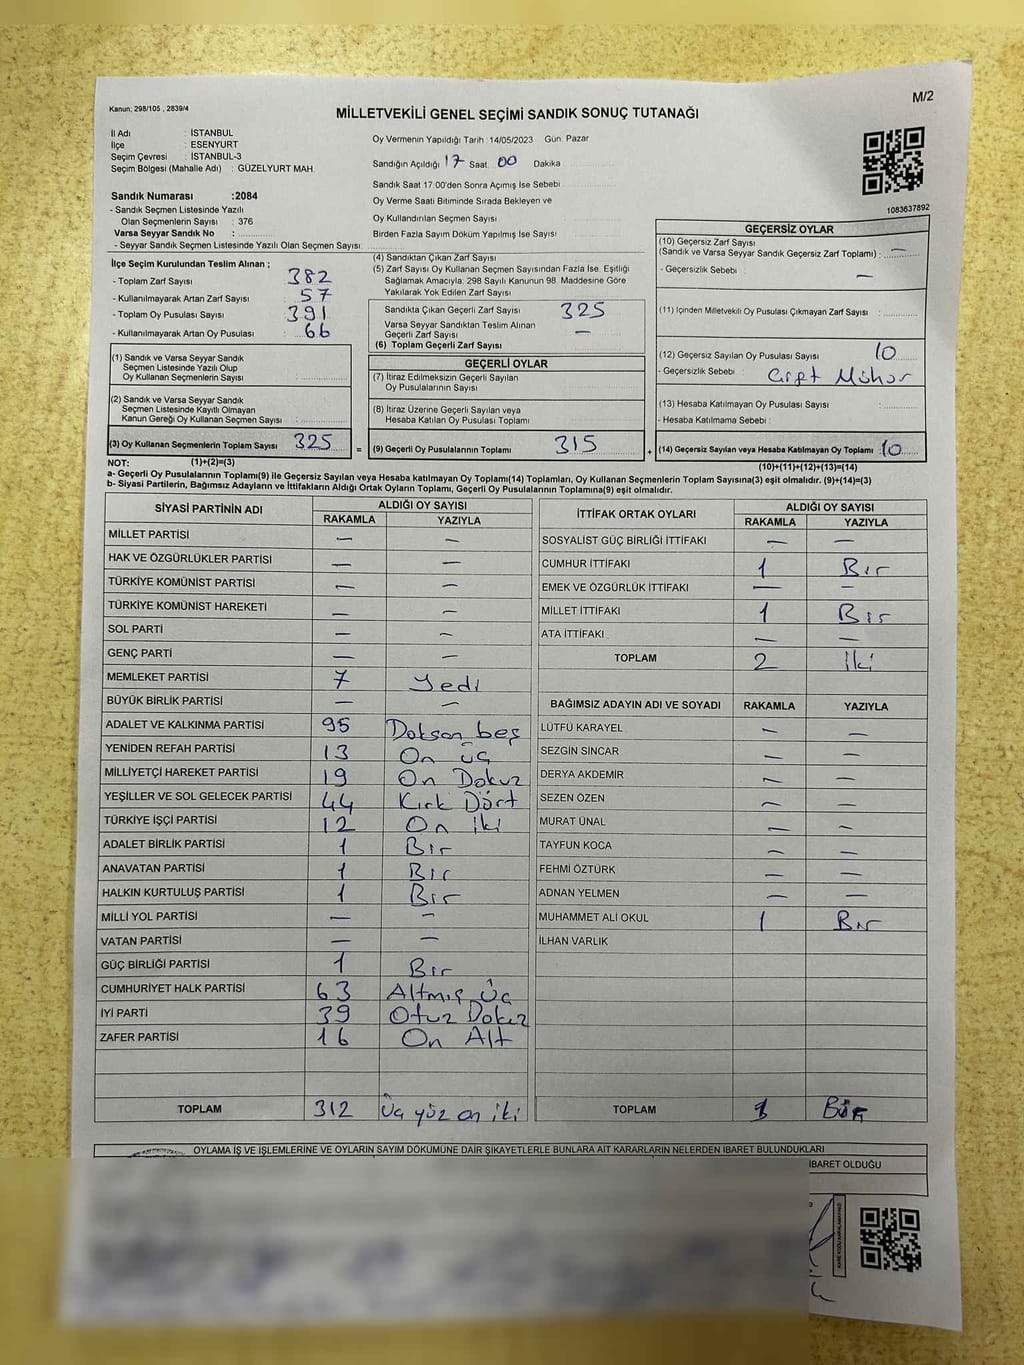 Kanun: 298/105 , 2839/4
M/2
MİLLETVEKİLİ GENEL SEÇİMİ SANDIK SONUÇ TUTANAĞI
İl Adı : İSTANBUL
İlçe : ESENYURT
Seçim Çevresi : İSTANBUL-3
Seçim Bölgesi (Mahalle Adı) : GÜZELYURT MAH
Sandık Numarası :2084
- Sandık Seçmen Listesinde Yazılı
Olan Seçmenlerin Sayısı : 376
Varsa Seyyar Sandık No :
- Seyyar Sandık Seçmen Listesinde Yazılı Olan Seçmen Sayısı:
Oy Vermenin Yapıldığı Tarih : 14/05/2023 Gün: Pazar
Sandığın Açıldığı 17 Saat 00 Dakika
Sandık Saat 17:00'den Sonra Açımış İse Sebebi
Oy Verme Saati Bitiminde Sırada Bekleyen ve
Oy Kullandırılan Seçmen Sayısı
Birden Fazla Sayım Döküm Yapılmış İse Sayısı
1083637892
İlçe Seçim Kurulundan Teslim Alınan ;
- Toplam Zarf Sayısı 382
- Kullanılmayarak Artan Zarf Sayısı : 57
- Toplam Oy Pusulası Sayısı 391
- Kullanılmayarak Artan Oy Pusulası 66
(1) Sandık ve Varsa Seyyar Sandık
Seçmen Listesinde Yazılı Olup
Oy Kullanan Seçmenlerin Sayısı :
(2) Sandık ve Varsa Seyyar Sandık
Seçmen Listesinde Kayıtlı Olmayan
Kanun Gereği Oy Kullanan Seçmen Sayısı :
(3) Oy Kullanan Seçmenlerin Toplam Sayısı 325
(1)+(2)=(3)
(4) Sandıktan Çıkan Zarf Sayısı
(5) Zarf Sayısı Oy Kullanan Seçmen Sayısından Fazla İse, Eşitliği
Sağlamak Amacıyla, 298 Sayılı Kanunun 98. Maddesine Göre
Yakılarak Yok Edilen Zarf Sayısı
Sandıkta Çıkan Geçerli Zarf Sayısı 325
Varsa Seyyar Sandıktan Teslim Alınan
Geçerli Zarf Sayısı —
(6) Toplam Geçerli Zarf Sayısı
GEÇERLİ OYLAR
(7) İtiraz Edilmeksizin Geçerli Sayılan
Oy Pusulalarının Sayısı
(8) İtiraz Üzerine Geçerli Sayılan veya
Hesaba Katılan Oy Pusulası Toplamı
= (9) Geçerli Oy Pusulalarının Toplamı 315
GEÇERSİZ OYLAR
(10) Geçersiz Zarf Sayısı
(Sandık ve Varsa Seyyar Sandık Geçersiz Zarf Toplamı) : —
- Geçersizlik Sebebi : —
(11) İçinden Milletvekili Oy Pusulası Çıkmayan Zarf Sayısı :
(12) Geçersiz Sayılan Oy Pusulası Sayısı 10
- Geçersizlik Sebebi : Çift Mühür
(13) Hesaba Katılmayan Oy Pusulası Sayısı :
- Hesaba Katılmama Sebebi :
+ (14) Geçersiz Sayılan veya Hesaba Katılmayan Oy Toplamı : 10
(10)+(11)+(12)+(13)=(14)
NOT:
a- Geçerli Oy Pusulalarının Toplamı(9) ile Geçersiz Sayılan veya Hesaba katılmayan Oy Toplamı(14) Toplamları, Oy Kullanan Seçmenlerin Toplam Sayısına(3) eşit olmalıdır. (9)+(14)=(3)
b- Siyasi Partilerin, Bağımsız Adayların ve İttifakların Aldığı Ortak Oyların Toplamı, Geçerli Oy Pusulalarının Toplamına(9) eşit olmalıdır.
SİYASİ PARTİNİN ADI ALDIĞI OY SAYISI
RAKAMLA YAZIYLA
MİLLET PARTİSİ — —
HAK VE ÖZGÜRLÜKLER PARTİSİ — —
TÜRKİYE KOMÜNİST PARTİSİ — —
TÜRKİYE KOMÜNİST HAREKETİ — —
SOL PARTİ — —
GENÇ PARTİ — —
MEMLEKET PARTİSİ 7 Yedi
BÜYÜK BİRLİK PARTİSİ — —
ADALET VE KALKINMA PARTİSİ 95 Doksan beş
YENİDEN REFAH PARTİSİ 13 On üç
MİLLİYETÇİ HAREKET PARTİSİ 19 On Dokuz
YEŞİLLER VE SOL GELECEK PARTİSİ 44 Kırk Dört
TÜRKİYE İŞÇİ PARTİSİ 12 On iki
ADALET BİRLİK PARTİSİ 1 Bir
ANAVATAN PARTİSİ 1 Bir
HALKIN KURTULUŞ PARTİSİ 1 Bir
MİLLİ YOL PARTİSİ — —
VATAN PARTİSİ — —
GÜÇ BİRLİĞİ PARTİSİ 1 Bir
CUMHURİYET HALK PARTİSİ 63 Altmış Üç
İYİ PARTİ 39 Otuz Dokuz
ZAFER PARTİSİ 16 On Alt
TOPLAM 312 Üç yüz on iki
İTTİFAK ORTAK OYLARI ALDIĞI OY SAYISI
RAKAMLA YAZIYLA
SOSYALİST GÜÇ BİRLİĞİ İTTİFAKI — —
CUMHUR İTTİFAKI 1 Bir
EMEK VE ÖZGÜRLÜK İTTİFAKI — —
MİLLET İTTİFAKI 1 Bir
ATA İTTİFAKI — —
TOPLAM 2 İki
BAĞIMSIZ ADAYIN ADI VE SOYADI RAKAMLA YAZIYLA
LÜTFÜ KARAYEL — —
SEZGİN SİNCAR — —
DERYA AKDEMİR — —
SEZEN ÖZEN — —
MURAT ÜNAL — —
TAYFUN KOCA — —
FEHMİ ÖZTÜRK — —
ADNAN YELMEN — —
MUHAMMET ALİ OKUL 1 Bir
İLHAN VARLIK
TOPLAM 1 Bir
OYLAMA İŞ VE İŞLEMLERİNE VE OYLARIN SAYIM DÖKÜMÜNE DAİR ŞİKAYETLERLE BUNLARA AİT KARARLARIN NELERDEN İBARET BULUNDUKLARI
İBARET OLDUĞU